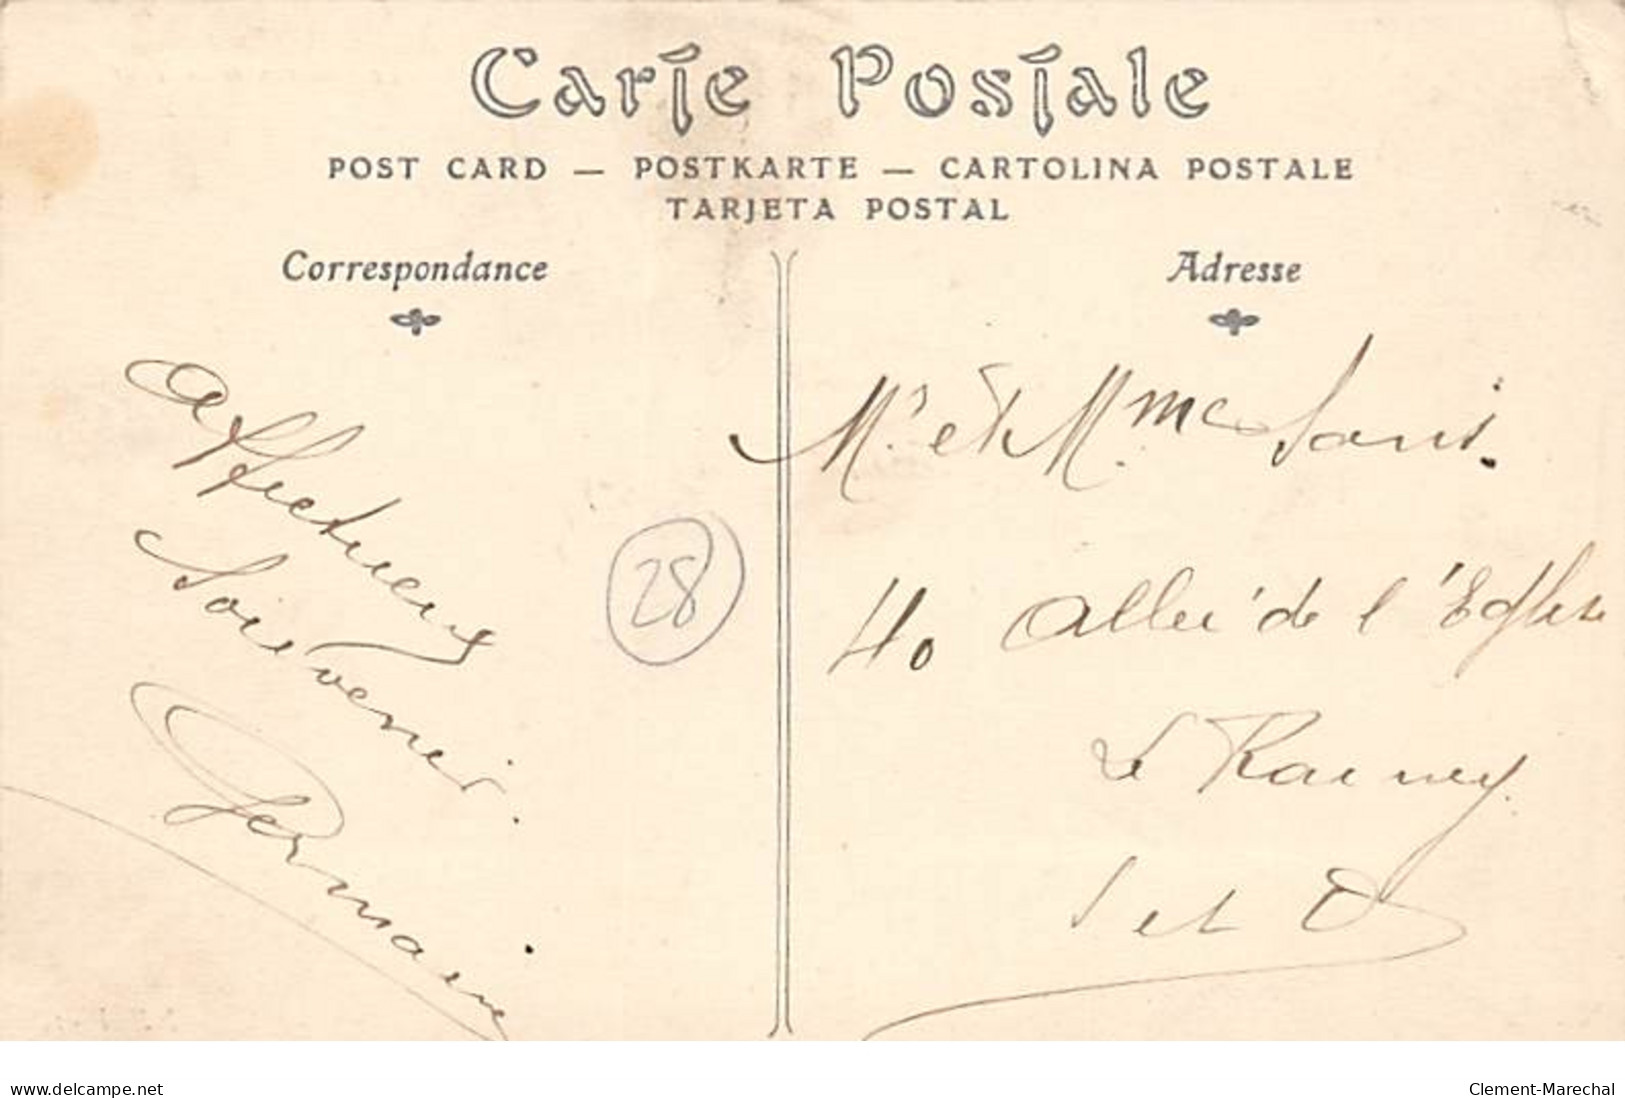 Carte Postale
POST CARD — POSTKARTE — CARTOLINA POSTALE
TARJETA POSTAL
Correspondance
Affectueux
Souvenir.
Germaine
28
Adresse
Mr et Mme
40 Allée de l'Eglise
Le Raincy
S et O
www.delcampe.net
Clement-Marechal